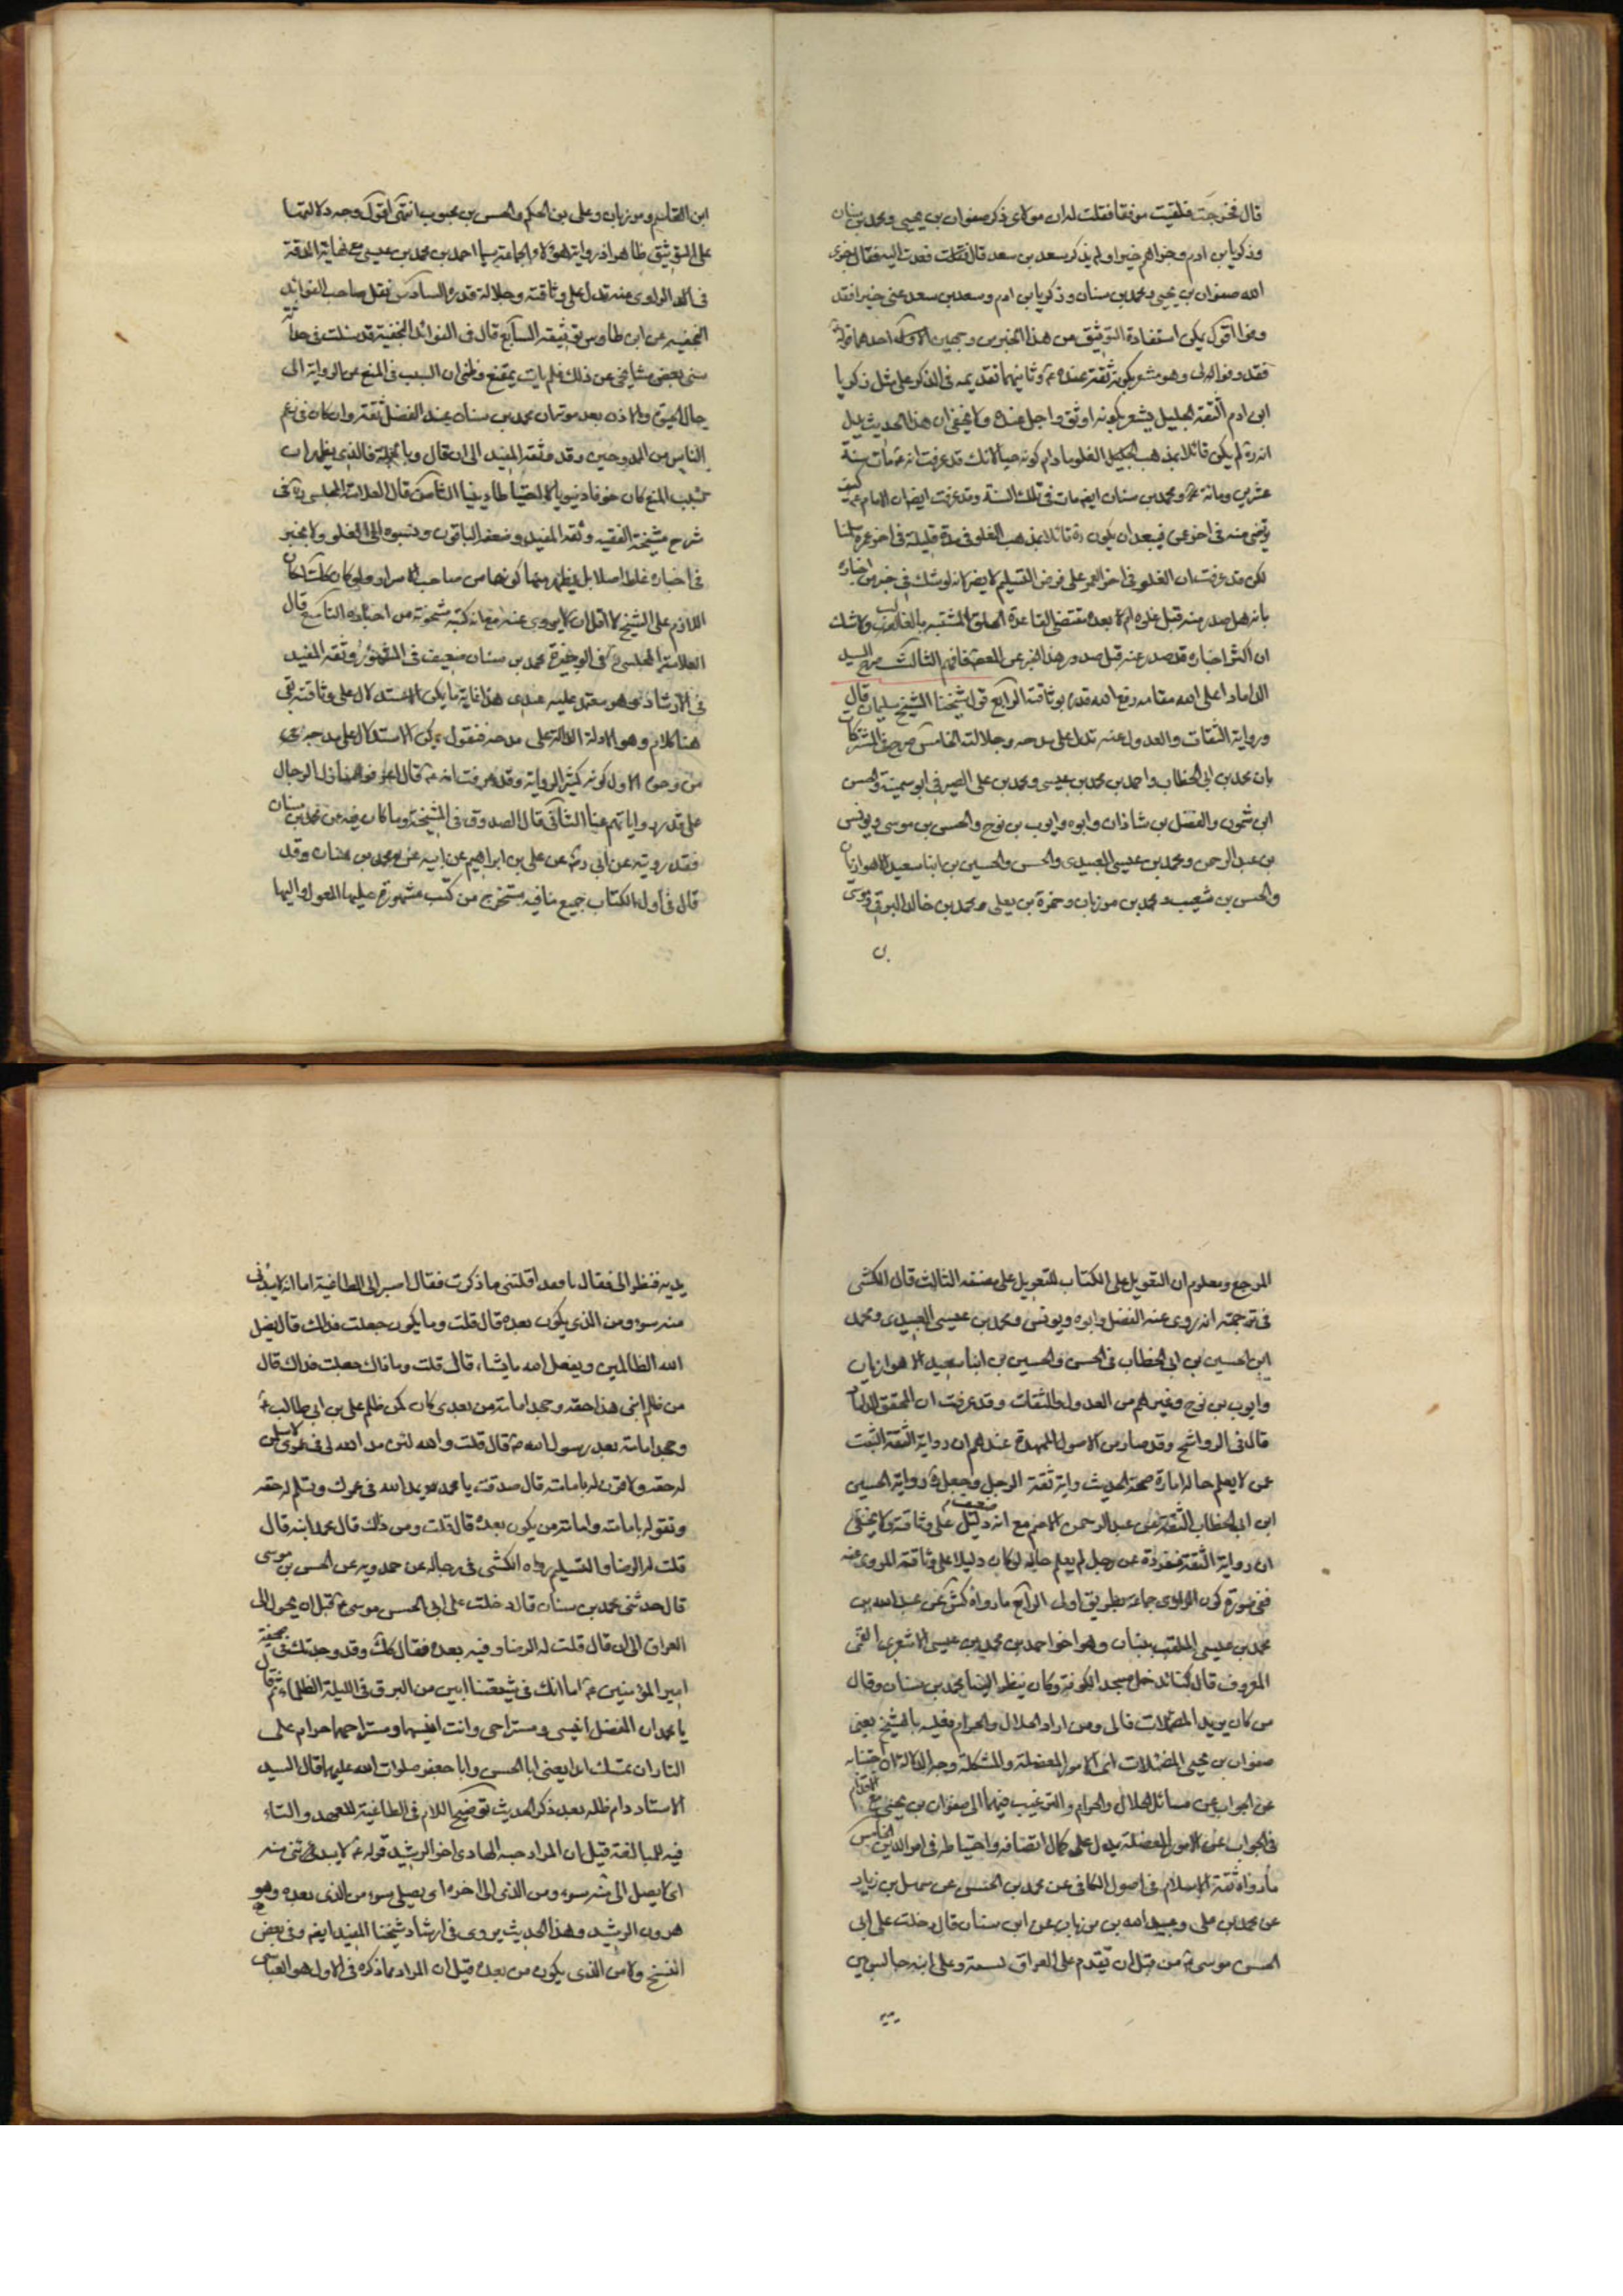 قال فخرجت فلقيت موفقا فقلت له ان مولاى ذكر صفوان بن يحيى ومحمد بن سنان
وزكريا بن ادم وجزاهم خيرا ولم يذكر سعد بن سعد قال فعدت اليه فقال جزى
الله صفوان بن يحيى ومحمد بن سنان وزكريا بن ادم وسعد بن سعد عنى خيرا فقد
وفوا اقول يمكن استفادة التوثيق من هذا الخبر من وجهين الاول احدهما قوله
فقد وفوا لى وهو مشعر بكونه ثقة عنده وثانيهما تقديمه فى الذكر على مثل زكريا
ابن ادم الثقة الجليل يشعر بكونه اوثق واجل عنده ولا يخفى ان هذا الحديث يدل
انه لم يكن قائلا بمذهب الغلو مادام كونه حيا لانك قد عرفت انه مات سنة
عشرين ومائة ومحمد بن سنان ايضا مات فى تلك السنة وقد عرفت ايضا ان الامام كيف
رضى عنه فى اخر عمره فيبعد ان يكون قائلا بمذهب الغلو فى مدة قليلة فى اخر عمره سلمنا
لكن قد عرفت ان الغلو فى اخر العمر على فرض التسليم لا يضر لانه لو شك فى خبر من اخباره
بانه هل صدر منه قبل غلوه ام لا بعده مقتضى القاعدة الحاق المشتبه بالغالب ولا شك
ان اكثر اخباره قد صدر عنه قبل صدور هذا الخبر عن المعصوم فافهم الثالث صرح السيد
الداماد اعلى الله مقامه ورفع الله قدره بوثاقته الرابع قول شيخنا الشيخ سليمان قال
ورواية الثقات والعدول عنه تدل على مدحه وجلالته الخامس صرح فى المشتركات
بان محمد بن ابى الخطاب واحمد بن محمد بن عيسى ومحمد بن على الصيرفى ابو سمينة والحسن
ابن شمون والفضل بن شاذان وابوه وايوب بن نوح والحسن بن موسى ويونس
بن عبد الرحمن ومحمد بن عيسى العبيدى والحسن والحسين بن ابنا سعيد الاهوازيان
والحسن بن شعيب ومحمد بن مرزبان وحمزة بن يعلى ومحمد بن خالد البرقى وموسى
ابن القاسم ومرزبان وعلى بن الحكم والحسن بن محبوب انتهى اقول وجه دلالتها
على التوثيق ظاهر اذ رواية هؤلاء الجماعة سيما احمد بن محمد بن عيسى مع نهاية الدقة
فى الراوى عنه تدل على وثاقته وجلالة قدره السادس نقل صاحب الفوائد
النجفيه عن ابن طاوس توثيقه السابع قال فى الفوائد النجفية قد سئلت فى
سنى بعض مشايخى عن ذلك فلم يات بمقنع وظنى ان السبب فى المنع عن الرواية الى
حال الحيوة والاذن بعد موته ان محمد بن سنان عند الفضل ثقة وان كان فى زعم
الناس من المدوحين وقد وثقه المفيد الى ان قال وبالجملة فالذى يظهر ان
سبب المنع كان خوفا دنيويا لا احتياطا دينيا الثامن قال العلامة المجلسى ره فى
شرح مشيخة الفقيه وثقه المفيد وضعفه الباقون ونسبوه الى الغلو ولا نجد
فى اخباره غلطا اصلا بل يظهر منها كونها من صاحب الاسرار ولو كان كذلك لكان
اللازم على الشيخ لا اقل ان لا يروى عنه مع ان كتبه مشحونة من اخباره التاسع قال
العلامة المجلسى فى الوجيزة محمد بن سنان ضعيف فى المشهور وثقه المفيد
فى الارشاد وهو معتمد عليه عندى هذا غاية ما يمكن الاستدلال على وثاقته بقى
هنا كلام وهو الادلة الدالة على مدحه فنقول يمكن الاستدلال على مدحه بوجوه
من وجوه الاول كونه كثير الرواية وقد عرفت انه قال اعرفوا منازل الرجال
على قدر رواياتهم عنا الثانى قال الصدوق فى المشيخة وما كان فيه عن محمد بن سنان
فقد رويته عن ابى ره عن على بن ابراهيم عن ابيه عن محمد بن سنان وقد
قال فى اول الكتاب جميع ما فيه مستخرج من كتب مشهورة عليها المعول واليها
المرجع ومعلوم ان التعويل على الكتاب للتعويل على مصنفه الثالث قال الكشى
فى ترجمته انه روى عنه الفضل وابوه ويونس ومحمد بن عيسى العبيدى ومحمد
ابن الحسين بن ابى الخطاب فى الحسن والحسين بن ابنا سعيد الاهوازيان
وايوب بن نوح وغيرهم من العدول والثقات وقد عرفت ان المحقق الداماد
قال فى الرواشح وقد صار من الاصول الممهدة عندهم ان رواية الثقة الثبت
عمن لا يعلم حاله امارة صحة الحديث واية ثقة الرجل وجعل رواية الحسين
ابن ابى الخطاب الثقة عن عبد الرحمن الاصم مع انه ضعيف دليل على وثاقته كما يخفى
ان رواية الثقة منفردة عن رجل لم يعلم حاله لو كان دليلا على وثاقة المروى عنه
ففى صورة كون الراوى جماعة بطريق اولى الرابع ما رواه كش عن عبد الله بن
محمد بن عيسى الملقب ببنان وهو اخو احمد بن محمد بن عيسى الاشعرى القمى
المعروف قال كنا ندخل مسجد الكوفة وكان ينظر الينا محمد بن سنان وقال
من كان يريد المعضلات فالى ومن اراد الحلال والحرام فعليه بالشيخ يعنى
صفوان بن يحيى المعضلات اى الامور المعضلة والمشكلة وجه الدلالة ان اجتنابه
عن الجواب عن مسائل الحلال والحرام والترغيب فيهما الى صفوان بن يحيى مع
فى الجواب عن الامور المعضلة يدل على كمال انصافه واحتياطه فى امر الدين الخامس
ما رواه ثقة الاسلام فى اصول الكافى عن محمد بن الحسن عن سهل بن زياد
عن محمد بن على وعبيد الله بن مرزبان عن ابن سنان قال دخلت على ابى
الحسن موسى من قبل ان يقدم على العراق بسنة وعلى ابنه جالس بين
يديه
يديه فنظر الى فقال يا محمد اقلقتنى ما ذكرت فقال اصير الى الطاغية اما انه لا يبدئنى
منه سوء ومن الذى يكون بعده قال قلت وما يكون جعلت فداك قال يضل
الله الظالمين ويفعل الله ما يشاء قال قلت وما ذاك جعلت فداك قال
من ظلم ابنى هذا حقه وجحد امامته من بعدى كان كمن ظلم على بن ابى طالب
وجحد امامته بعد رسول الله قال قلت والله لئن مد الله لى فى عمرى لاسلمن
له حقه ولاقرن له بامامته قال صدقت يا محمد يمد الله فى عمرك وتسلم له حقه
وتقر له بامامته وامامة من يكون بعده قال قلت ومن ذاك قال محمد ابنه قال
قلت له الرضا والتسليم رواه الكشى فى رجاله عن حمدويه عن الحسن بن موسى
قال حدثنى محمد بن سنان قال دخلت على ابى الحسن موسى قبل ان يحمل الى
العراق الى ان قال قلت له الرضا وفيه بعده فقال كذلك وقد وجدتك فى صحيفة
امير المؤمنين اما انك فى شيعتنا ابين من البرق فى الليلة الظلماء ثم قال
يا محمد ان المفضل انيسى ومستراحى وانت انيسهما ومستراحهما حرام على
النار ان تمسك ابدا يعنى ابا الحسن وابا جعفر صلوات الله عليهما قال السيد
الاستاد دام ظله بعد ذكر الحديث توضيح اللام فى الطاغية للعهد والتاء
فيه للمبالغة قيل ان المراد به الهادى اخو الرشيد قوله لا يبدئنى منه
اى لا يصل الى منه سوء ومن الذى الى اخره اى يصلى سوء من الذى بعده وهو
هرون الرشيد وهذا الحديث يروى فى ارشاد شيخنا المفيد ايضا وفى بعض
النسخ ولا من الذى يكون من بعده قيل ان المراد بما ذكره فى الاول هو العباسى